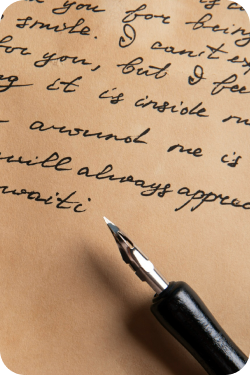 you for being
smile. I can't ex
for you, but I fee
g it is inside m
around me is
will always apprec
waiti